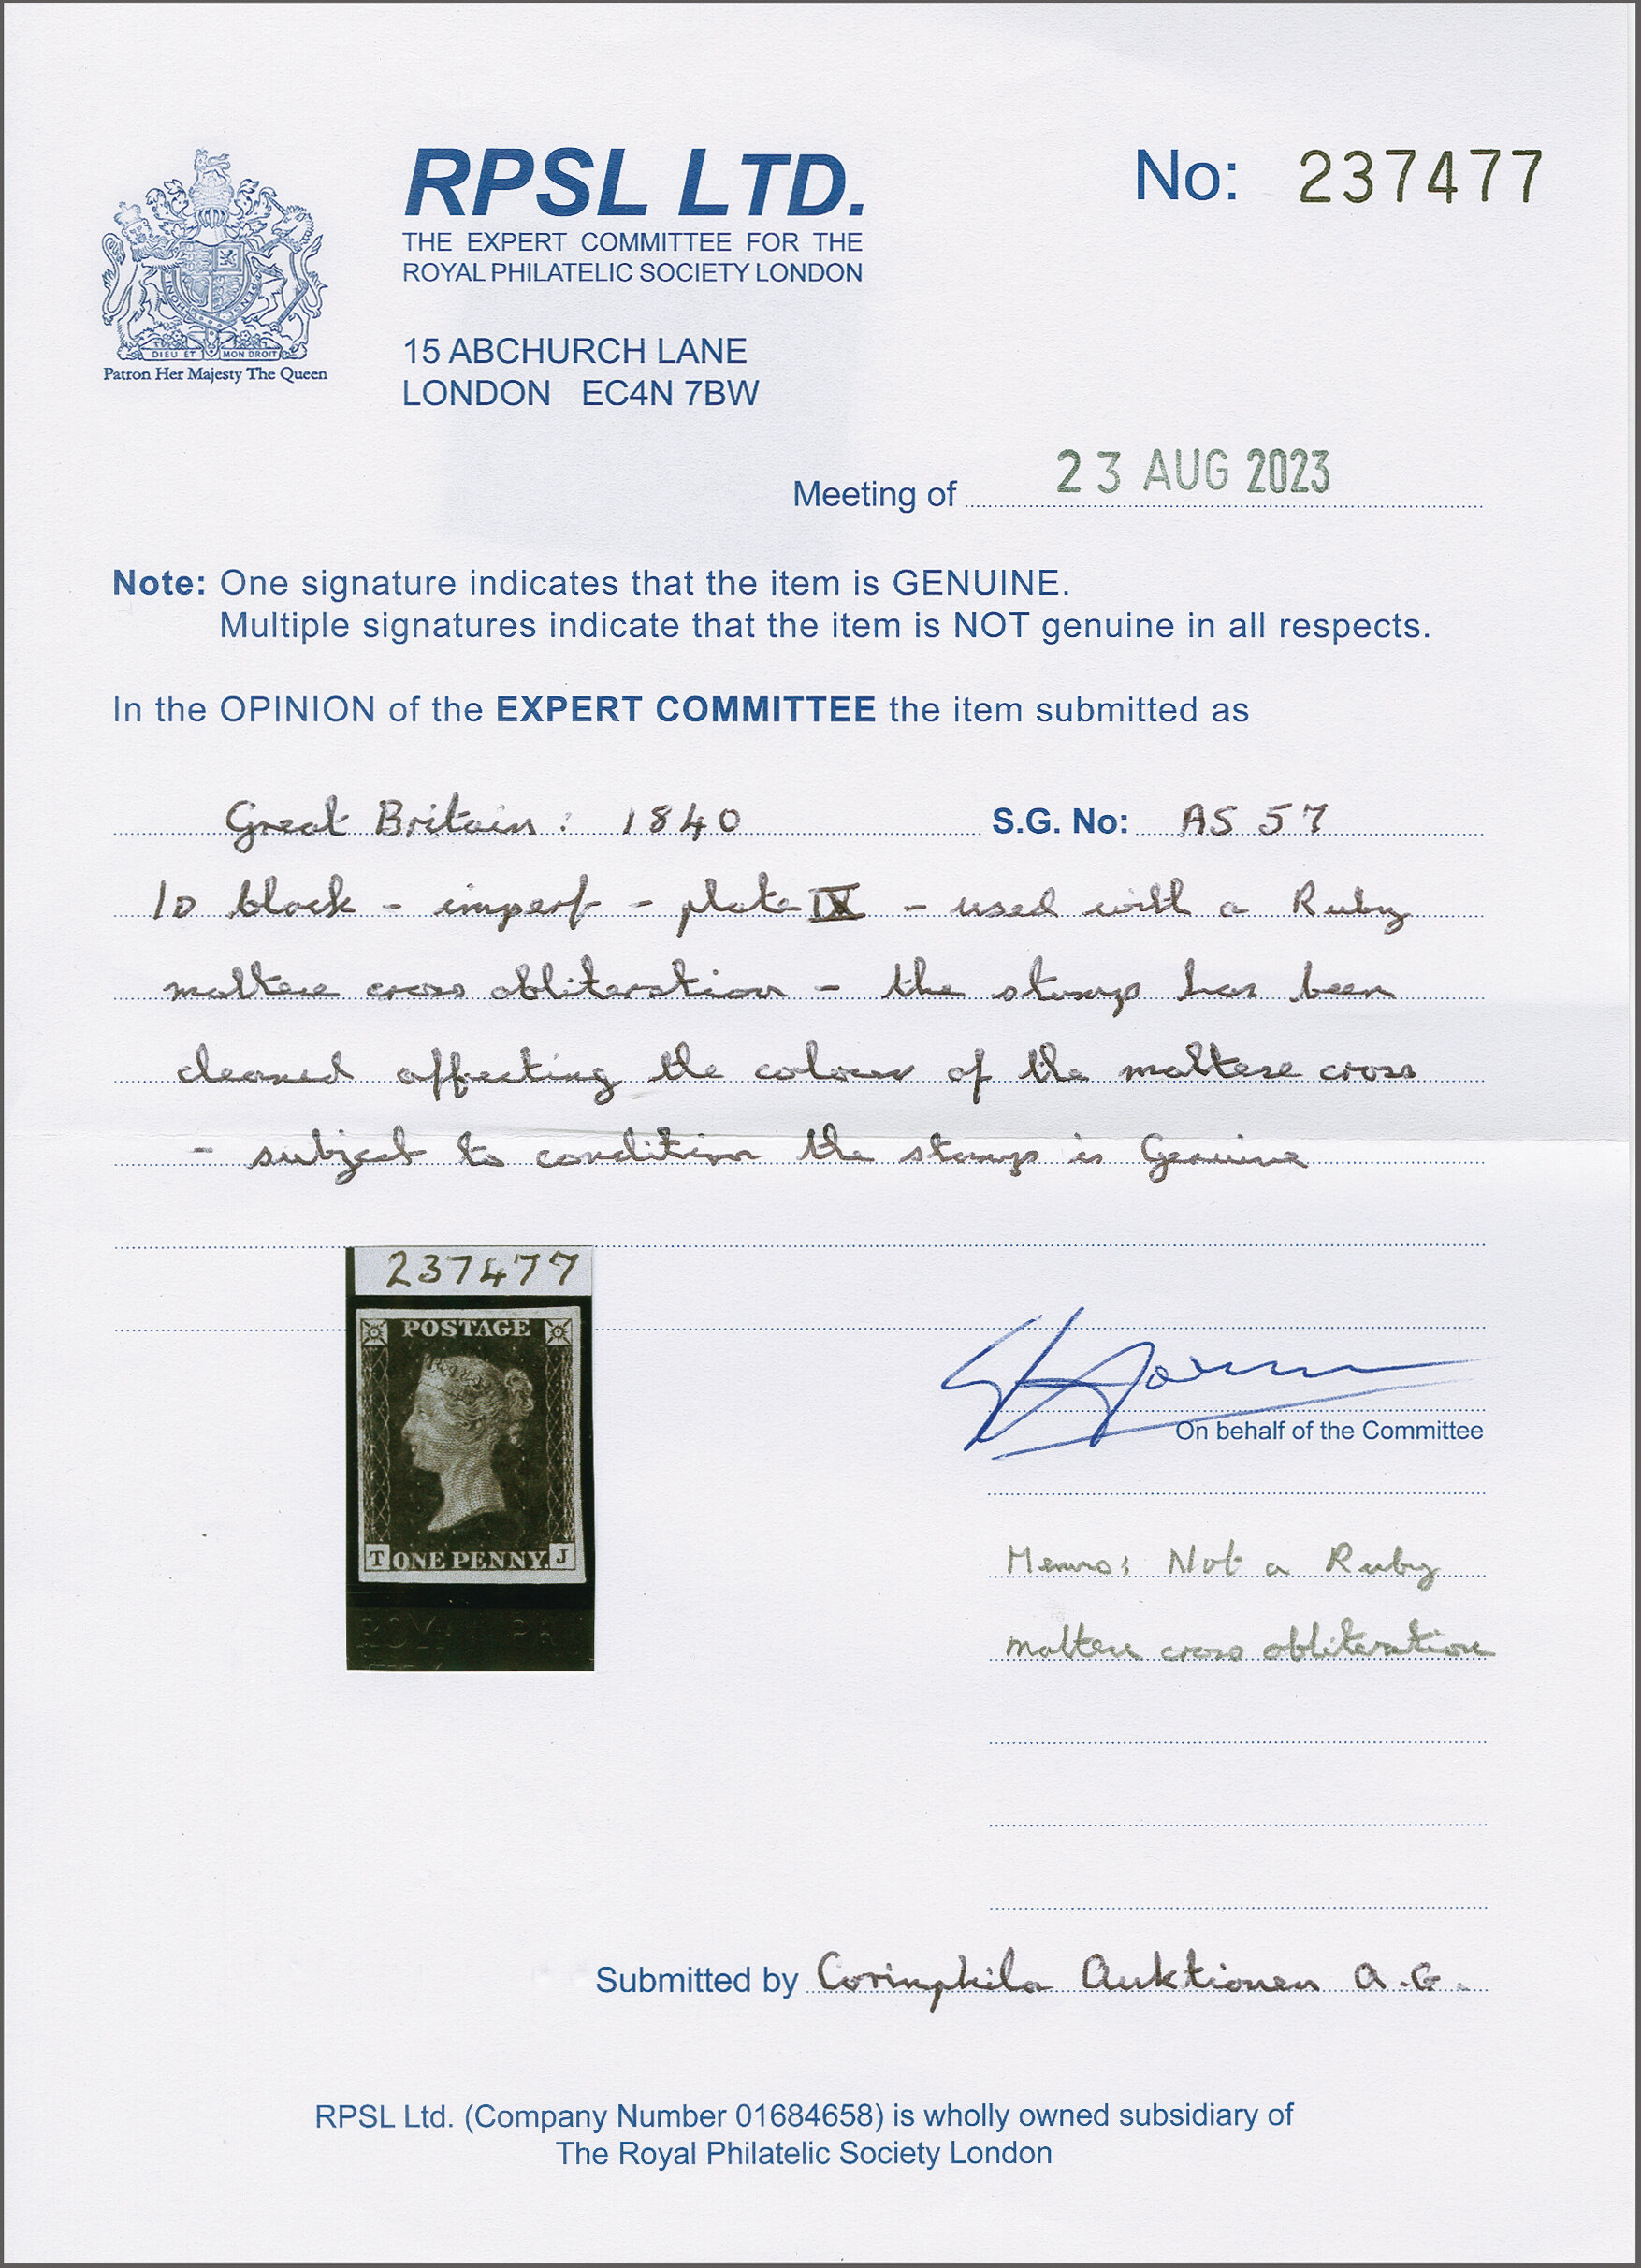 RPSL LTD.
THE EXPERT COMMITTEE FOR THE
ROYAL PHILATELIC SOCIETY LONDON
15 ABCHURCH LANE
LONDON EC4N 7BW
No: 237477
DIEU ET MON DROIT
Patron Her Majesty The Queen
Meeting of 23 AUG 2023
Note: One signature indicates that the item is GENUINE.
Multiple signatures indicate that the item is NOT genuine in all respects.
In the OPINION of the EXPERT COMMITTEE the item submitted as
Great Britain: 1840 S.G. No: AS 57
1D black - imperf - plate IX - used with a Ruby
maltese cross obliteration - the stamp has been
cleaned affecting the colour of the maltese cross
- subject to condition the stamp is Genuine
237477
POSTAGE
T ONE PENNY. J
On behalf of the Committee
Memo: Not a Ruby
maltese cross obliteration
Submitted by Corinphila Auktionen A.G.
RPSL Ltd. (Company Number 01684658) is wholly owned subsidiary of
The Royal Philatelic Society London